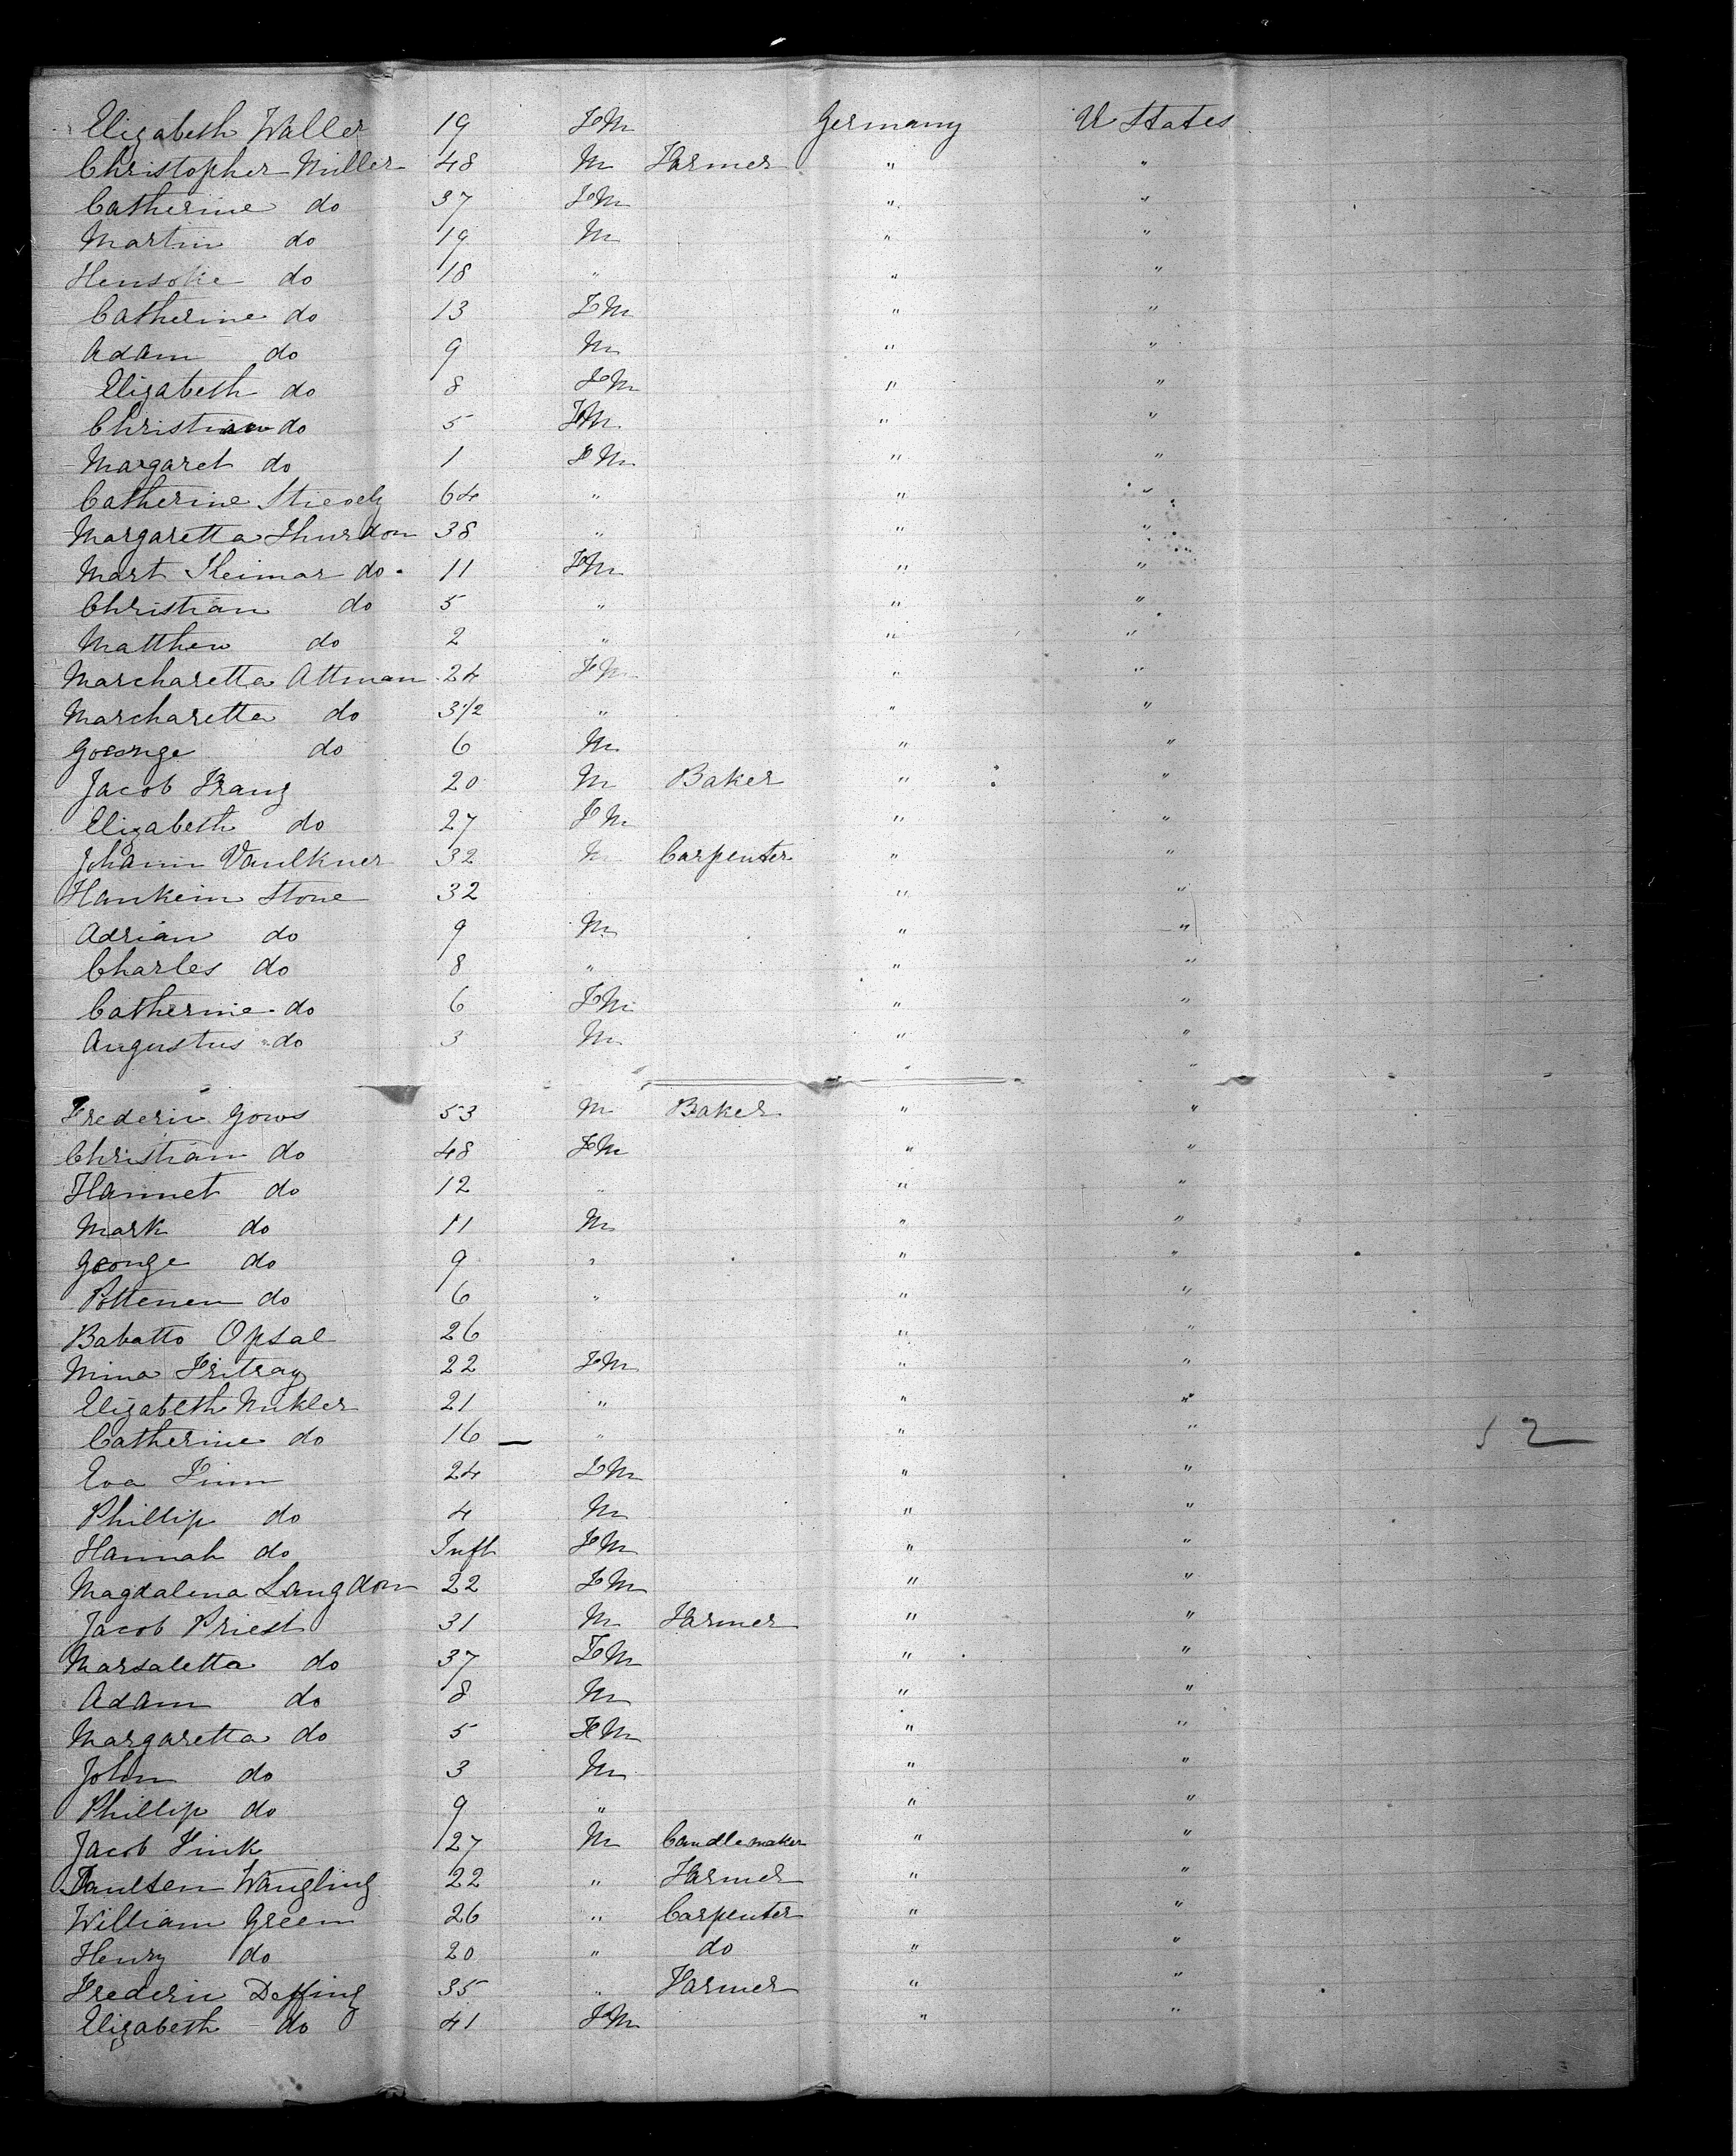 Elizabeth Waller 19 FM Germany U States
Christopher Miller 48 M Farmer " "
Catherine do 37 FM " "
Martin do 19 M " "
do 18 " " "
Catherine do 13 FM " "
Adam do 9 M " "
Elizabeth do 8 FM " "
Christian do 5 FM " "
Margaret do 1 FM " "
Catherine 64 " " "
Margaretta Thurdon 38 " " "
Mart Heimar do 11 FM " "
Christian do 5 " " "
Matthew do 2 " " "
Marcharetta Attman 24 FM " "
Marcharetta do 3 1/2 " " "
George do 6 M " "
Jacob Franz 20 M Baker " "
Elizabeth do 27 FM " "
Johann Vaulkner 32 M Carpenter " "
Hankein Stone 32 " "
Adrian do 9 M " "
Charles do 8 " " "
Catherine do 6 FM " "
Augustus do 3 M " "
Frederic Gows 53 M Baker " "
Christian do 48 FM " "
Hannet do 12 " " "
Mark do 11 M " "
George do 9 " " "
do 6 " " "
Babatto Opsal 26 " "
Mina Fritray 22 FM " "
Elizabeth Nukler 21 " " "
Catherine do 16 " " " 52
Eva Finn 24 FM " "
Phillip do 4 M " "
Hannah do Inft FM " "
Magdalena Langdon 22 FM " "
Jacob Priest 31 M Farmer " "
Marsaletta do 37 FM " "
Adam do 8 M " "
Margaretta do 5 FM " "
John do 3 M " "
Phillip do 9 " " "
Jacob Fink 27 M Candlemaker " "
Wangling 22 " Farmer " "
William Green 26 " Carpenter " "
Henry do 20 " do " "
Frederic Deffing 35 " Farmer " "
Elizabeth do 41 FM " "